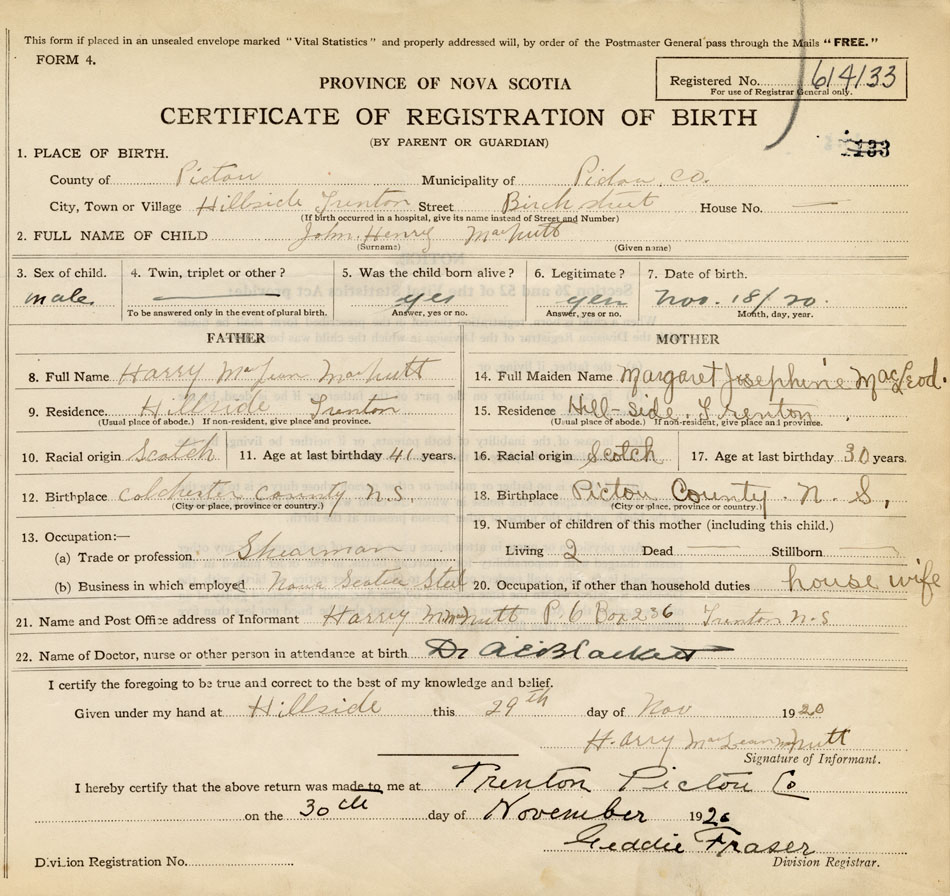 This form if placed in an unsealed envelope marked "Vital Statistics" and properly addressed will, by order of the Postmaster General pass through the Mails "FREE."
FORM 4.
PROVINCE OF NOVA SCOTIA
Registered No. 614133
For use of Registrar General only.
CERTIFICATE OF REGISTRATION OF BIRTH
(BY PARENT OR GUARDIAN)
1. PLACE OF BIRTH.
County of Pictou Municipality of Pictou Co.
City, Town or Village Hillside Trenton Street Birch street House No. —
(If birth occurred in a hospital, give its name instead of Street and Number)
2. FULL NAME OF CHILD John Henry MacNutt
(Surname) (Given name)
3. Sex of child. 4. Twin, triplet or other? 5. Was the child born alive? 6. Legitimate? 7. Date of birth.
male — yes yes Nov. 18/20.
To be answered only in the event of plural birth. Answer, yes or no. Answer, yes or no. Month, day, year.
FATHER MOTHER
8. Full Name Harry McLean MacNutt 14. Full Maiden Name Margaret Josephine MacLeod.
9. Residence Hillside Trenton 15. Residence Hill-side. Trenton
(Usual place of abode.) If non-resident, give place and province. (Usual place of abode.) If non-resident, give place and province.
10. Racial origin Scotch 11. Age at last birthday 41 years. 16. Racial origin Scotch 17. Age at last birthday 30 years.
12. Birthplace Colchester County N.S. 18. Birthplace Pictou County. N. S,
(City or place, province or country.) (City or place, province or country.)
19. Number of children of this mother (including this child.)
13. Occupation:—
(a) Trade or profession. Shearman Living 2 Dead — Stillborn —
(b) Business in which employed Nova Scotia Steel 20. Occupation, if other than household duties house wife
21. Name and Post Office address of Informant Harry M MacNutt P.O Box 236 Trenton N.S
22. Name of Doctor, nurse or other person in attendance at birth Dr Blackett
I certify the foregoing to be true and correct to the best of my knowledge and belief.
Given under my hand at Hillside this 29th day of Nov 1920
Harry MacLean MacNutt
Signature of Informant.
I hereby certify that the above return was made to me at Trenton Pictou Co
on the 30th day of November 1920
Geddie Fraser
Division Registration No. Division Registrar.